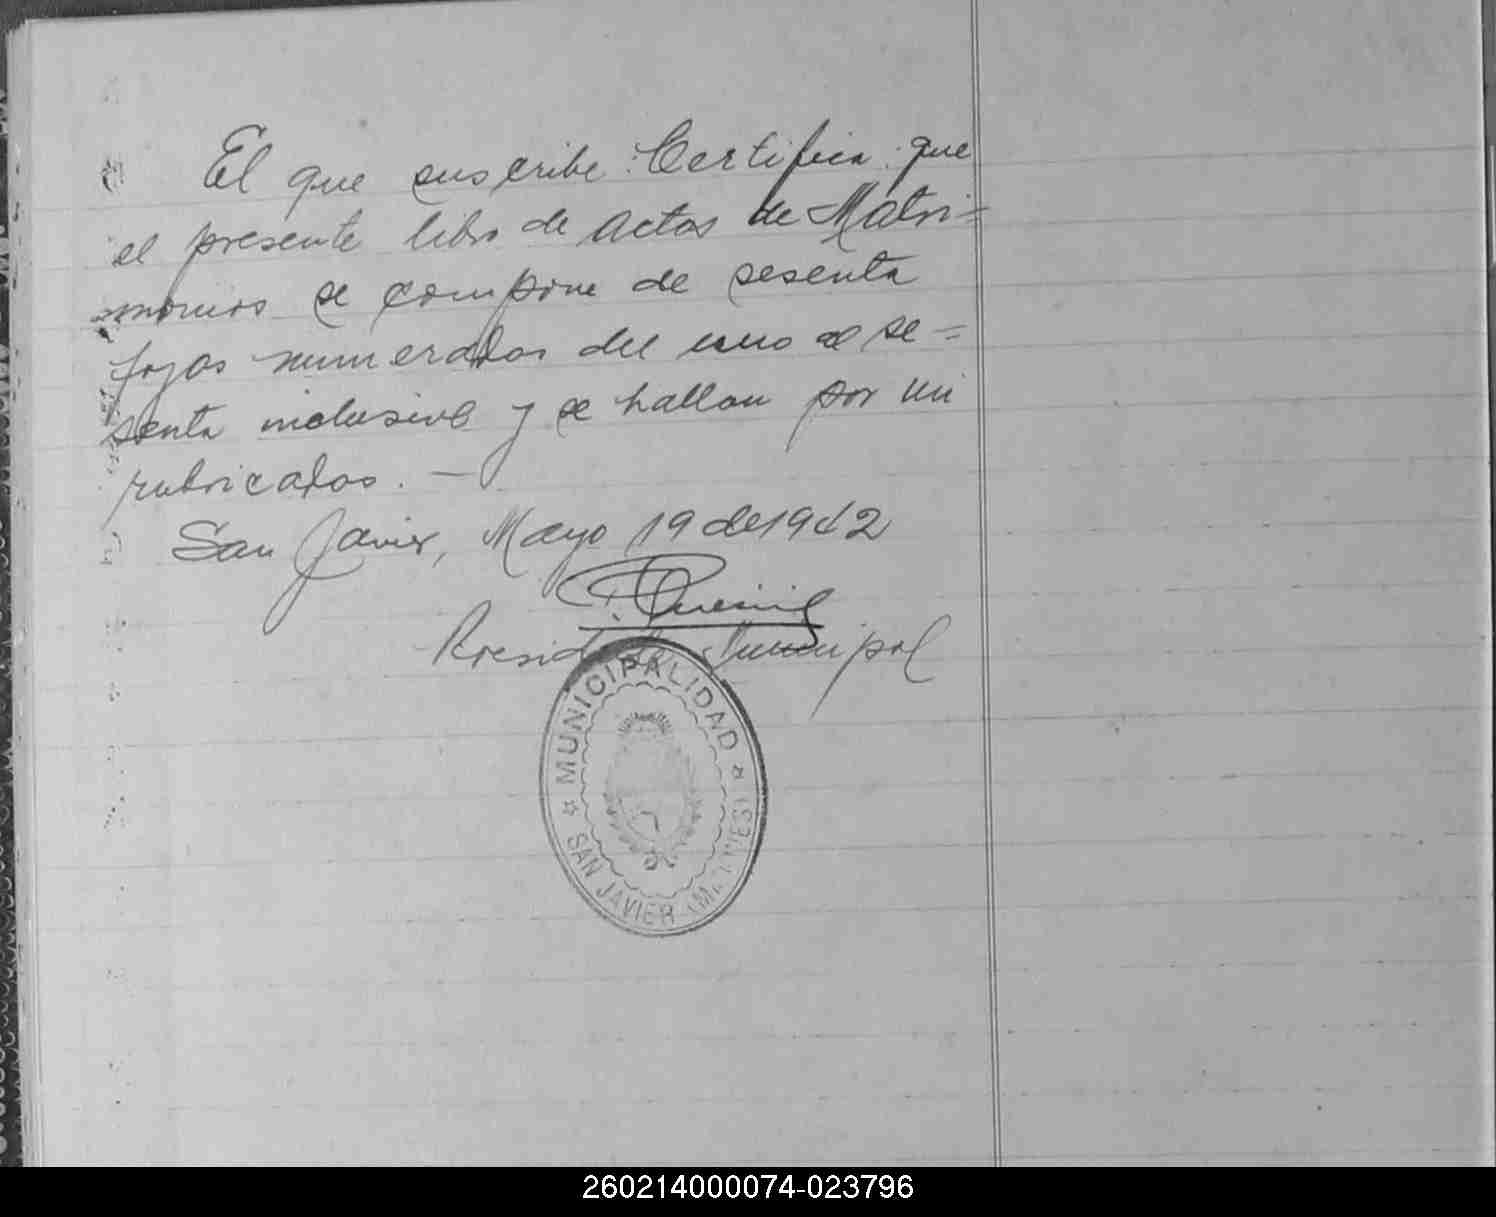 El que suscribe: Certifica: que
el presente libro de actas de Matri=
monios se compone de sesenta
fojas numeradas del uno al se=
senta inclusive y se hallan por mi
rubricadas. —
San Javier, Mayo 19 de 1942
Presidente Municipal
MUNICIPALIDAD
SAN JAVIER
260214000074-023796